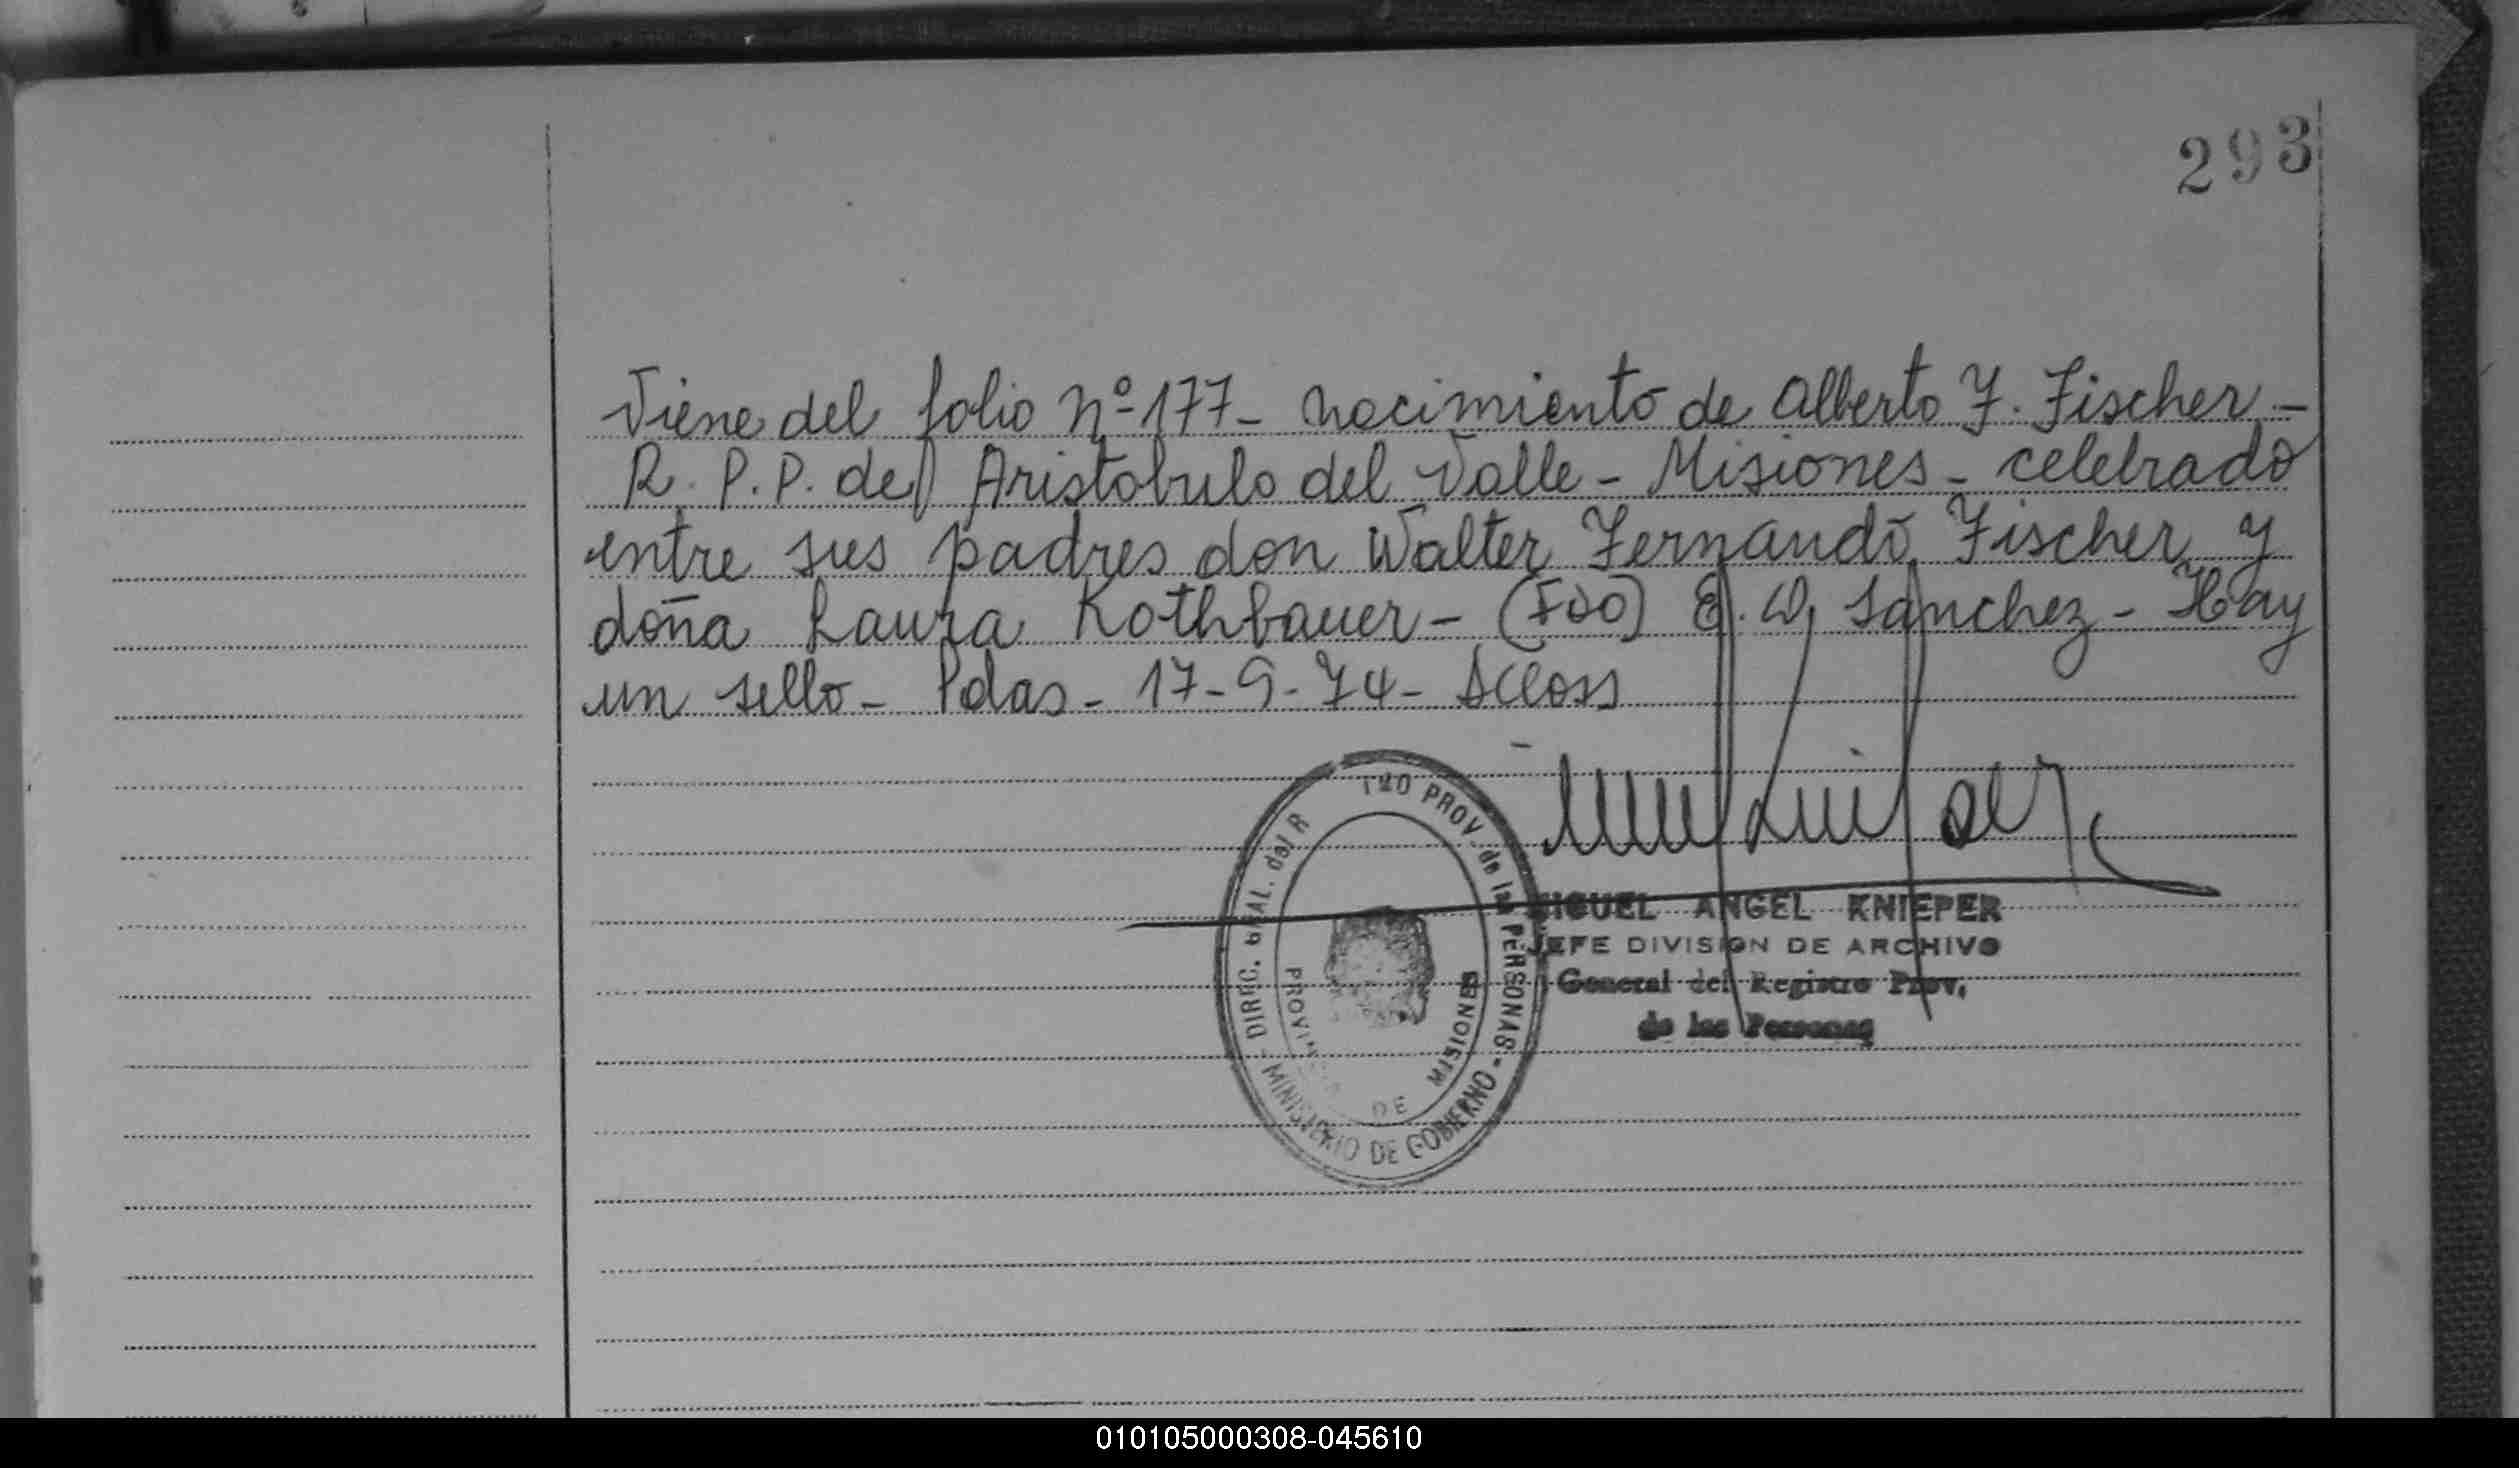 293
Viene del folio Nº 177 - nacimiento de Alberto F. Fischer -
R. P. P. de Aristobulo del Valle - Misiones - celebrado
entre sus padres don Walter Fernando Fischer y
doña Laura Rothbauer - (Fdo) E. W. Sanchez - Hay
un sello - Pdas - 17-9-74 -
DIREC. GRAL. del R TRO PROV. de las PERSONAS - MINISTERIO DE GOBIERNO -
PROVINCIA DE MISIONES
MIGUEL ANGEL KNIEPER
JEFE DIVISION DE ARCHIVO
General del Registro Prov.
de las Personas
010105000308-045610